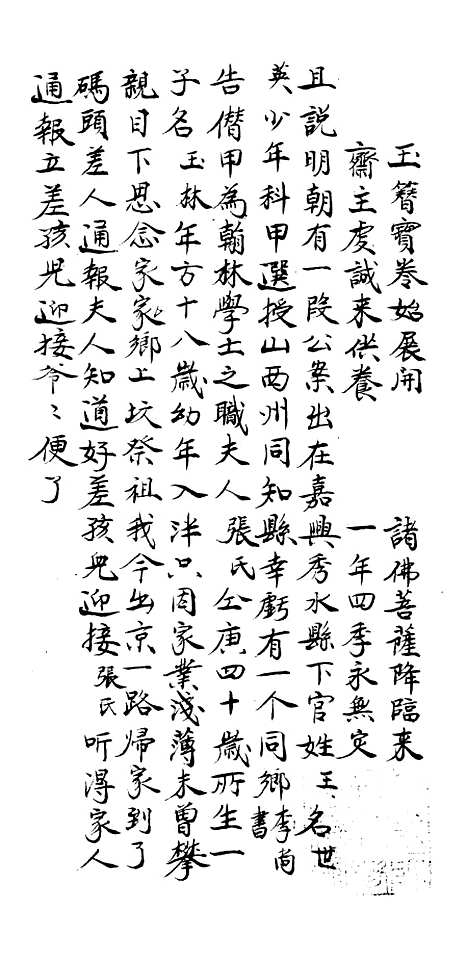 玉簪寶卷始展開　諸佛菩薩降臨来
齋主虔誠来供養　一年四季永無灾
且説明朝有一段公案出在嘉興秀水縣下官姓王名世
英少年科甲選授山西州同知縣幸虧有一个同鄉李尚書
告僣甲為翰林學士之職夫人張氏仝庚四十歲所生一
子名玉林年方十八歲幼年入泮只因家業淺薄未曾攀
親目下思念家家鄉上坟祭祖我今出京一路歸家到了
碼頭差人通報夫人知道好差孩兒迎接張氏听得家人
通報立差孩兒迎接爷〻便了